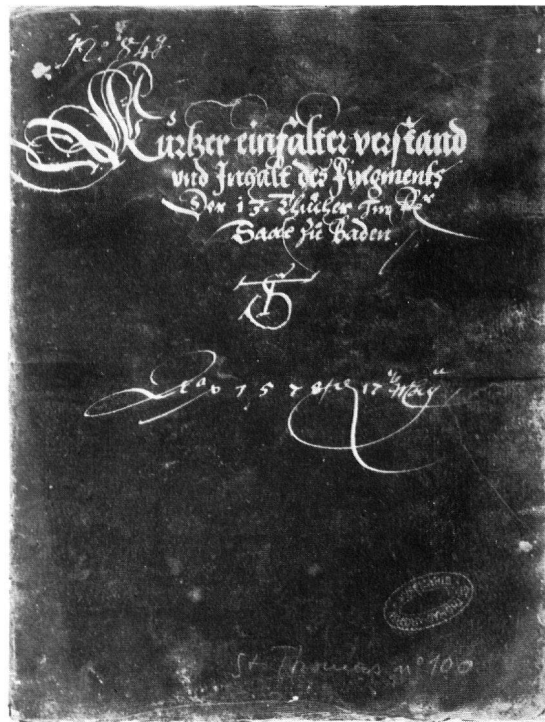 N.º 849.
Kurtzer einfalter verstand
vnd Inhalt des Pingments
Der 13. Thücher Im
Saal zü Baden
Aº 1578
17
St Thomas nº 100